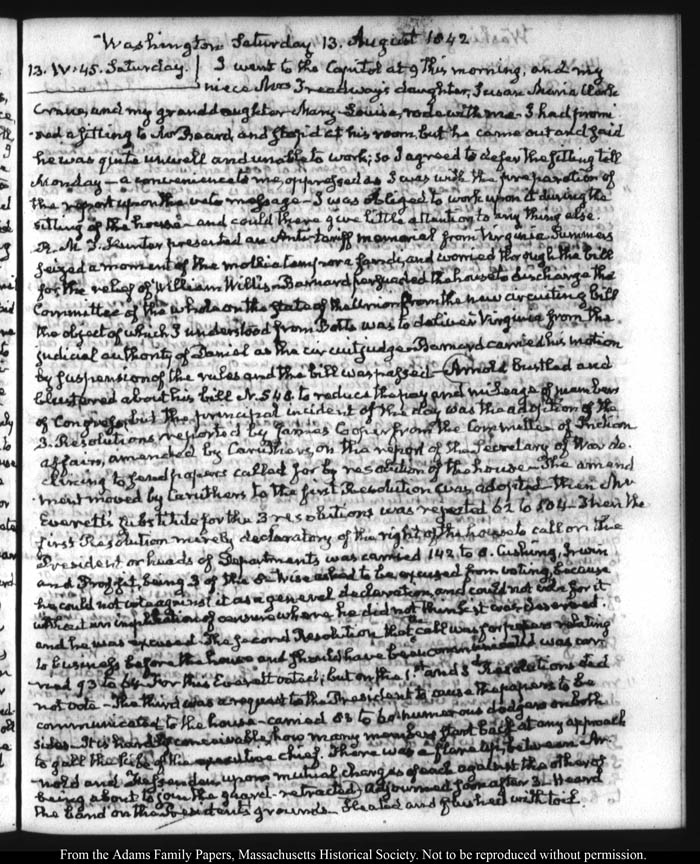 Washington Saturday 13. August 1842
13. IV:45. Saturday. I went to the Capitol at 9 this morning, and my
niece Mrs Treadway's daughter, Susan Maria Clark
Crane, and my granddaughter Mary Louisa, rode with me. I had promi-
sed a sitting to Mr Beard, and stop'd at his room, but he came out and said
he was quite unwell and unable to work; so I agreed to defer the sitting till
Monday — a convenience to me, oppressed as I was with the preparation of
the report upon the veto message — I was obliged to work upon it during the
sitting of the house — and could there give little attention to any thing else.
R. M. T. Hunter presented an Anti-tariff memorial from Virginia. Summers
seized a moment of the mollia tempora fandi, and wormed through the bill
for the relief of William Willis — Barnard persuaded the house to discharge the
Committee of the whole on the state of the Union from the new circuiting bill
the object of which I understood from Botts was to deliver Virginia from the
judicial authority of Daniel as the circuit judge — Barnard carried his motion
by suspension of the rules and the bill was passed — Arnold bustled and
blustered about his bill N. 548 to reduce the pay and mileage of members
of Congress, but the principal incident of the day was the adoption of the
3. Resolutions, reported by James Cooper from the Committee of Indian
affairs, amended by Caruthers, on the report of the Secretary of War de-
clining to send papers called for by resolution of the house — The amend
ment moved by Caruthers to the first Resolution was adopted — then Mr
Everett's substitute for the 3 resolutions was rejected 62 to 104 — Then the
first Resolution merely declaratory of the right of the house to call on the
President or heads of Departments was carried 142 to 8. Cushing, Irwin
and Proffit, being 3 of the 8. Wise asked to be excused from voting, because
he could not vote against it as a general declaration, and could not vote for it
without an implication of censure where he did not think it was deserved
and he was excused. The second Resolution that the call was for papers relating
to business before the house and should have been communicated was car-
ried 93 to 64. For this Everett voted; but on the 1st and 3d Resolutions did
not vote — The third was a request to the President to cause the papers to be
communicated to the house — carried 83 to 60 — numerous dodgers on both
sides — It is hardly conceivable how many members start back at any approach
to gall the kibe of the executive chief. There was a flare up, between Ar-
nold and Fessenden upon mutual charges of each against the other of
being about to join the guard — retracted, Adjourned soon after 3. Heard
the band on the President's grounds — Heated and flushed with toil.
From the Adams Family Papers, Massachusetts Historical Society. Not to be reproduced without permission.